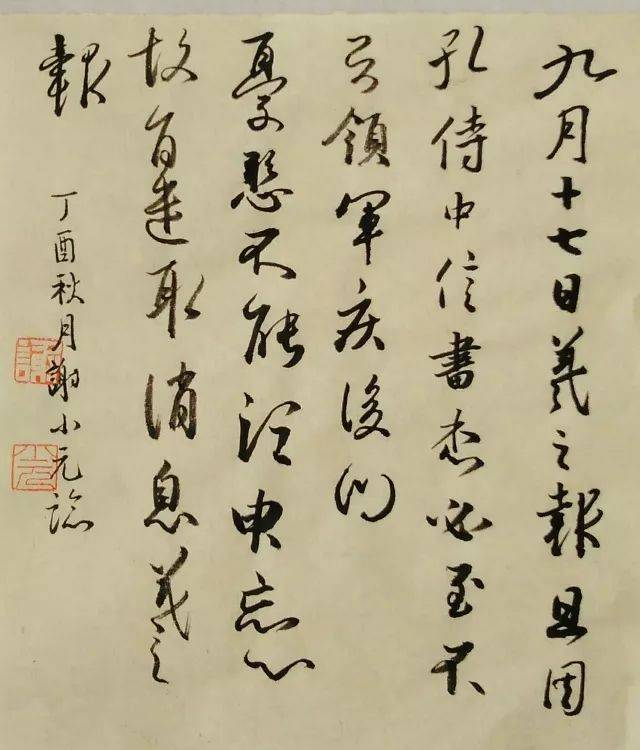 九月十七日羲之報且因
孔侍中信書想必至不
知領軍疾後問
憂懸不能須臾忘心
故旨遣取消息羲之
報
丁酉秋月謝小元臨